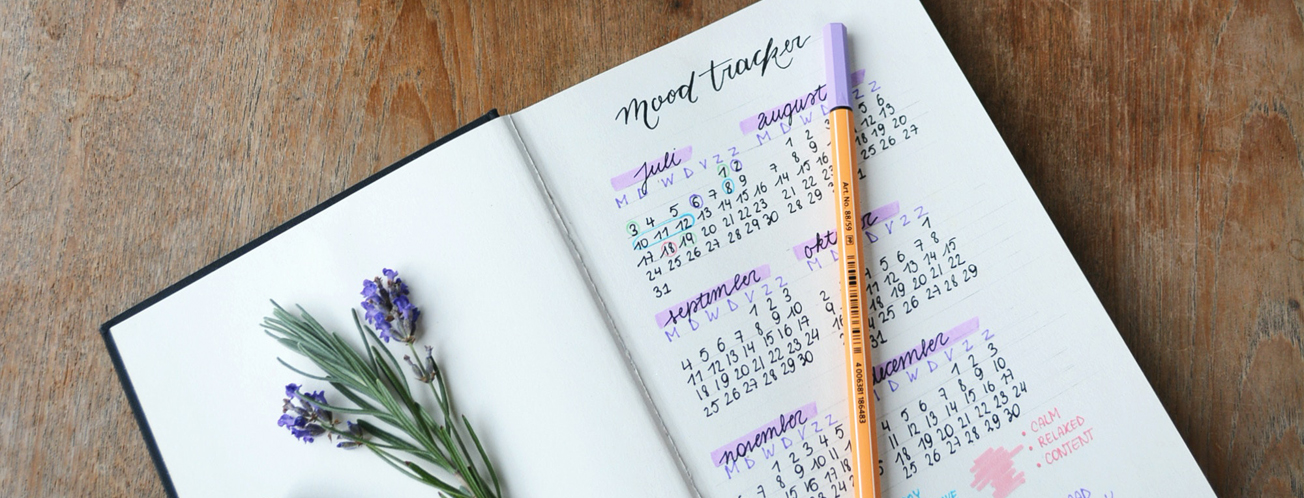 mood tracker
juli
M D W D V Z Z
1 2
3 4 5 6 7 8 9
10 11 12 13 14 15 16
17 18 19 20 21 22 23
24 25 26 27 28 29 30
31
august
M D Z Z
1 2 3 5 6
7 8 9 12 13
14 15 16 18 19 20
21 22 23 25 26 27
28 29
september
M D W D V Z Z
1 2 3
4 5 6 7 8 9 10
11 12 13 14 15 16 17
18 19 20 21 22 23 24
25 26 27 28 29 30
okt er
M D D V Z Z
1
2 4 5 6 7 8
9 11 12 13 14 15
16 18 19 20 21 22
25 26 27 28 29
31
november
M D W D V Z Z
1 2 3 4 5
8 9 10 11
december
D W D V Z Z
1 2 3
4 5 6 7 8 9 10
11 12 13 14 15 16 17
18 19 20 21 22 23 24
25 26 27 28 29 30
• CALM
• RELAXED
• CONTENT
Art. No. 88/59
4 006381 186483